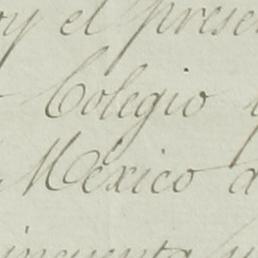 oy el presen
Colegio y
México a
cincuenta y